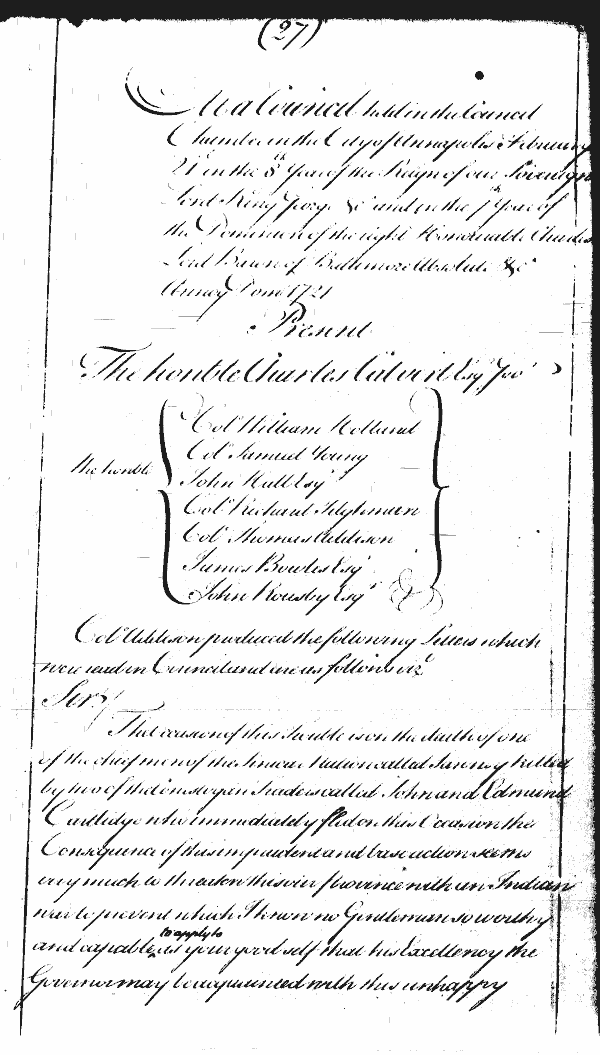 (27)
At a Council held in the Council
Chamber in the City of Annapolis February
21st in the 8th Year of the Reign of our Sovereign
Lord King George &c and in the 7th Year of
the Dominion of the right Honourable Charles
Lord Baron of Baltimore Absolute &c
Annoq Dom 1721
Present
The honble Charles Calvert Esqr Govr
Col William Holland
Col Samuel Young
John Hall Esqr
the honble
Col Richard Tilghman
Col Thomas Addison
James Bowles Esqr
John Rousby Esqr
Col Addison produced the following Letters which
were read in Council and are as follows vizt
Sir
The occasion of this trouble is on the death of one
of the chief men of the Nation called killed
by two of the Traders called John and Edmund
Cartlidge who immediately fled on this Occasion the
Consequence of this imprudent and base action seems
very much to threaten this over Province with an Indian
war to prevent which I know no Gentleman so worthy
and capable to apply to as your good self that his Excellency the
Governor may be acquainted with this unhappy